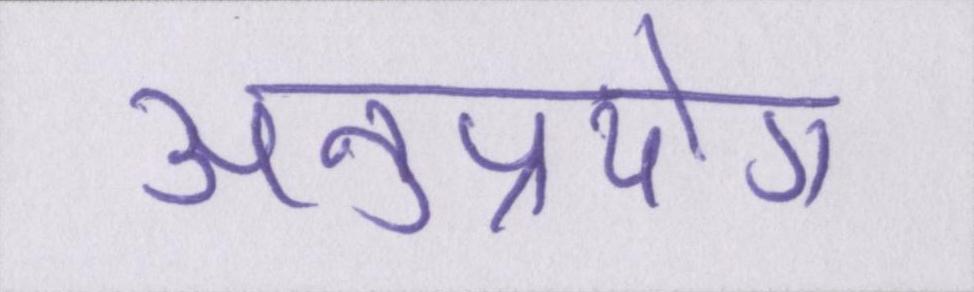 अनुप्रयोग